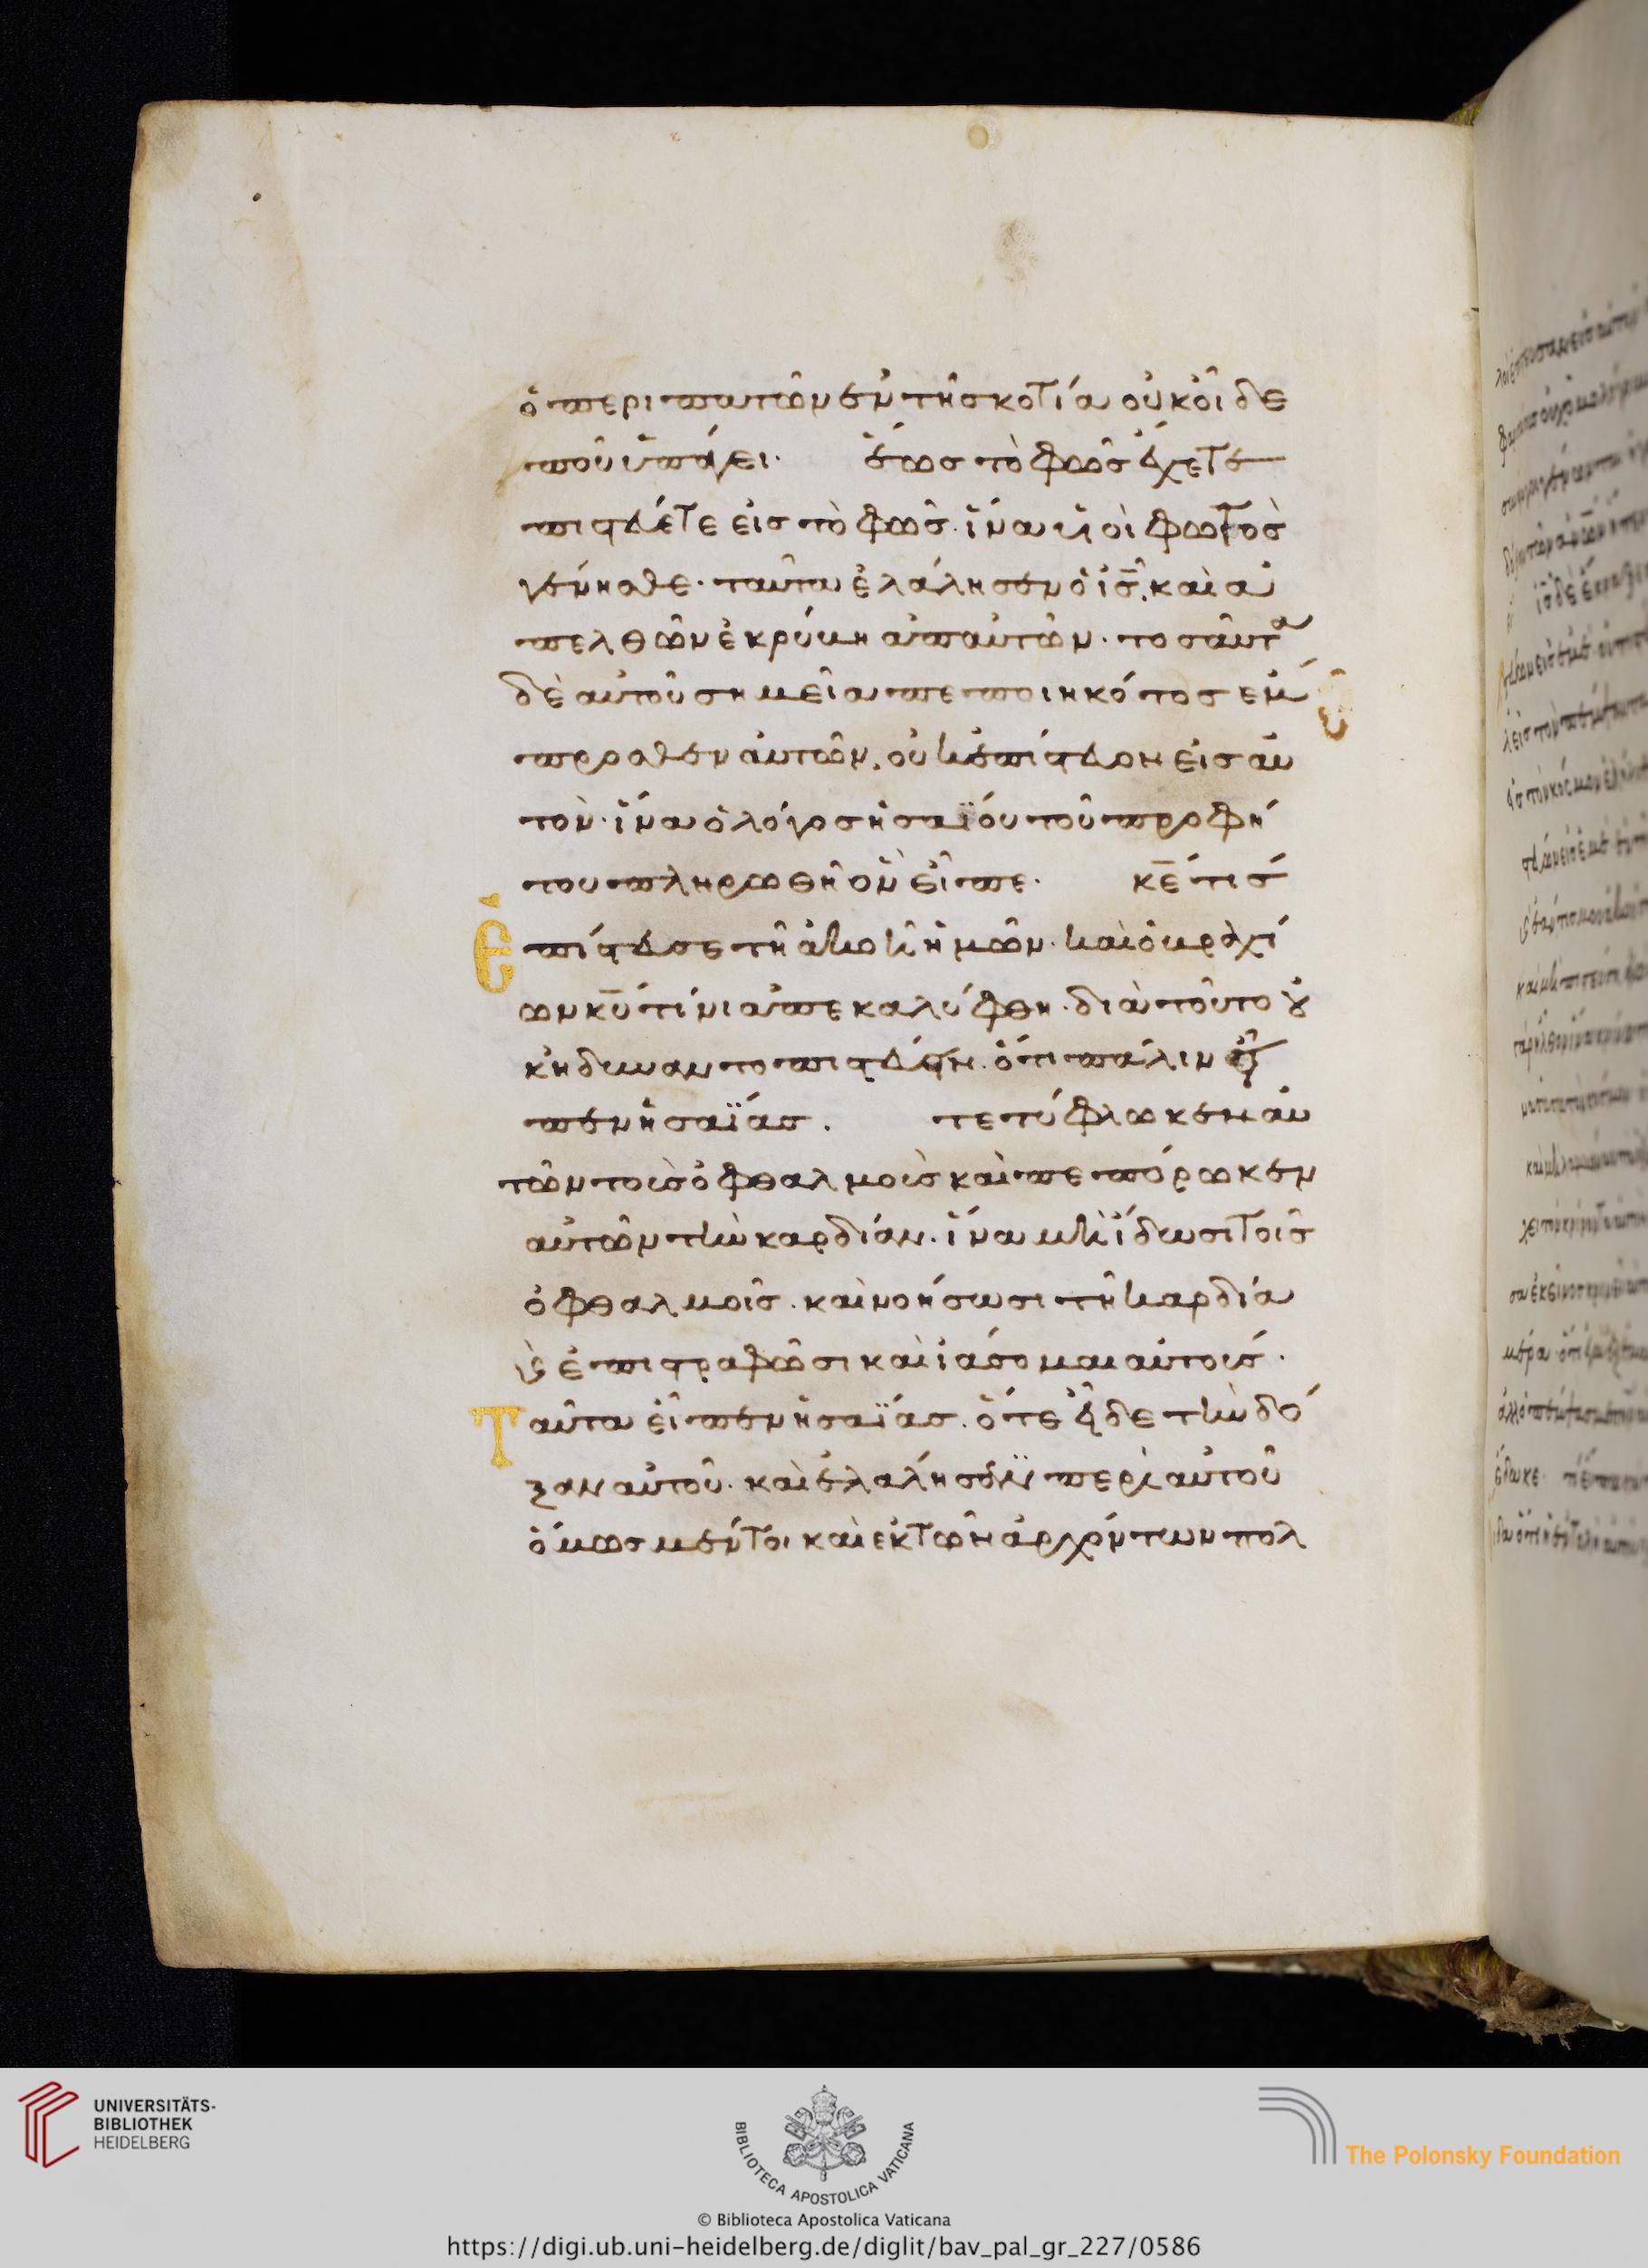 ὁ περιπατῶν ἐν τῆ σκοτία οὐκ οἶδε
ποῦ ὑπάγει. ἕως τὸ φῶς ἔχετε
πιστεύετε εἰς τὸ φῶς. ἵνα υἱοὶ φωτὸς
γένησθε. ταῦτα ἐλάλησεν ὁ ις̅. καὶ ἀ
πελθὼν ἐκρύβη ἀπ αὐτῶν. τοσαῦτα
δὲ αὐτοῦ σημεῖα πεποιηκότος ἔμ
προσθεν αὐτῶν, οὐκ ἐπίστευον εἰς αὐ
τὸν. ἵνα ὁ λόγος ἡσαΐου τοῦ προφή
του πληρωθῆ ὃν εἶπε. κε̅ τίς
ἐπίστευσε τῆ ἀκοῆ ἡμῶν. καὶ ὁ βραχί
ων κυ̅ τίνι ἀπεκαλύφθη. διὰ τοῦτο οὐ
κ ἠδύναντο πιστεύειν. ὅτι πάλιν εἶ
πεν ἡσαΐας. τετύφλωκεν αὐ
τῶν τοὺς ὀφθαλμοὺς καὶ πεπώρωκεν
αὐτῶν τὴν καρδίαν. ἵνα μὴ ἴδωσι τοῖς
ὀφθαλμοῖς. καὶ νοήσωσι τῆ καρδία
καὶ ἐπιστραφῶσι καὶ ἰάσομαι αὐτούς.
Ταῦτα εἶπεν ἡσαΐας. ὅτε εἶδε τὴν δό
ξαν αὐτοῦ. καὶ ἐλάλησεν περὶ αὐτοῦ
ὅμως μέντοι καὶ ἐκ τῶν ἀρχόντων πολ
UNIVERSITÄTS-
BIBLIOTHEK
HEIDELBERG
BIBLIOTECA APOSTOLICA VATICANA
The Polonsky Foundation
© Biblioteca Apostolica Vaticana
https://digi.ub.uni-heidelberg.de/diglit/bav_pal_gr_227/0586